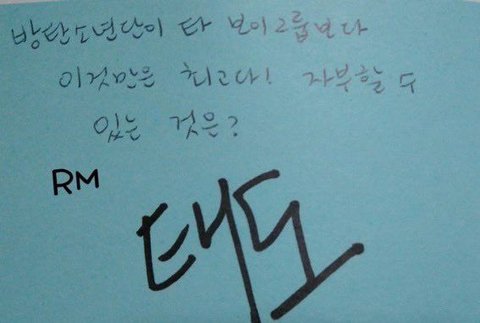 방탄소년단이 타 보이그룹보다
이것만은 최고다! 자부할 수
있는 것은?
RM
태도